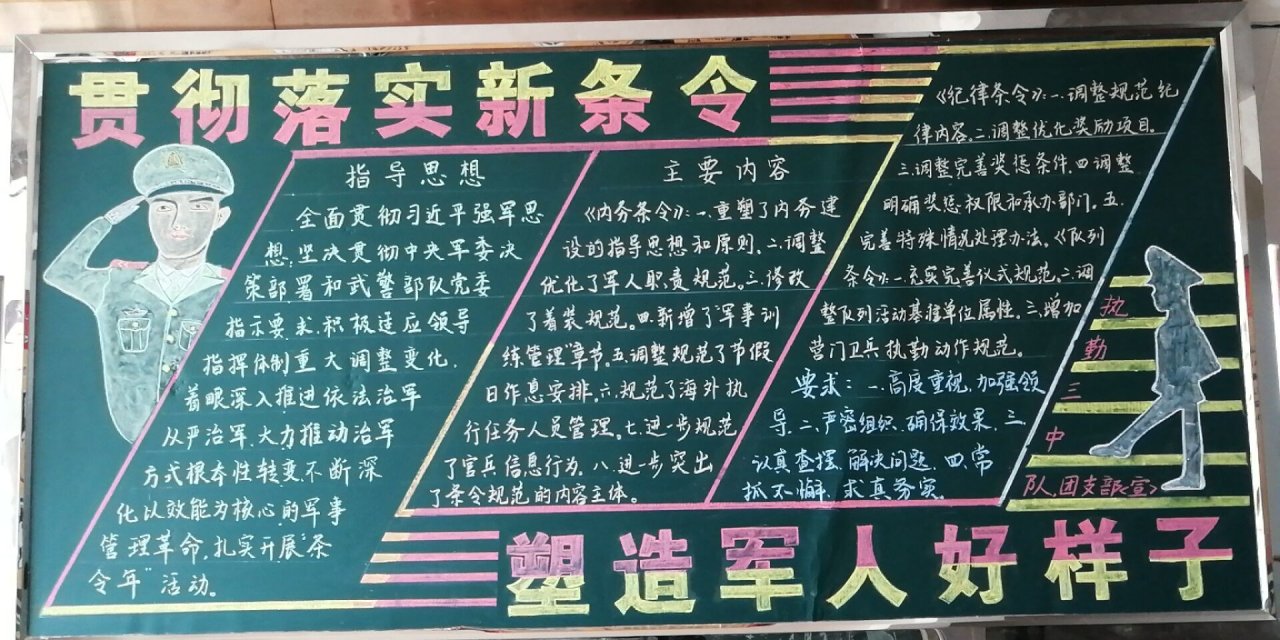 贯彻落实新条令
指导思想
全面贯彻习近平强军思
想,坚决贯彻中央军委决
策部署和武警部队党委
指示要求,积极适应领导
指挥体制重大调整变化,
着眼深入推进依法治军
从严治军,大力推动治军
方式根本性转变,不断深
化以效能为核心的军事
管理革命,扎实开展"条
令年"活动。
主要内容
《内务条令》:一.重塑了内务建
设的指导思想和原则.二.调整
优化了军人职责规范。三.修改
了着装规范。四.新增了"军事训
练管理"章节.五.调整规范了节假
日作息安排.六.规范了海外执
行任务人员管理.七.进一步规范
了官兵信息行为.八.进一步突出
了条令规范的内容主体。
《纪律条令》:一.调整规范纪
律内容.二.调整优化奖励项目.
三.调整完善奖惩条件.四.调整
明确奖惩权限和承办部门。五.
完善特殊情况处理办法。《队列
条令》:一.充实完善仪式规范.二.调
整队列活动基准单位属性。三.增加
营门卫兵执勤动作规范。
要求:一.高度重视,加强领
导.二.严密组织,确保效果.三.
认真查摆,解决问题.四.常
抓不懈,求真务实。
执
勤
三
中
队,团支部<宣>
塑造军人好样子